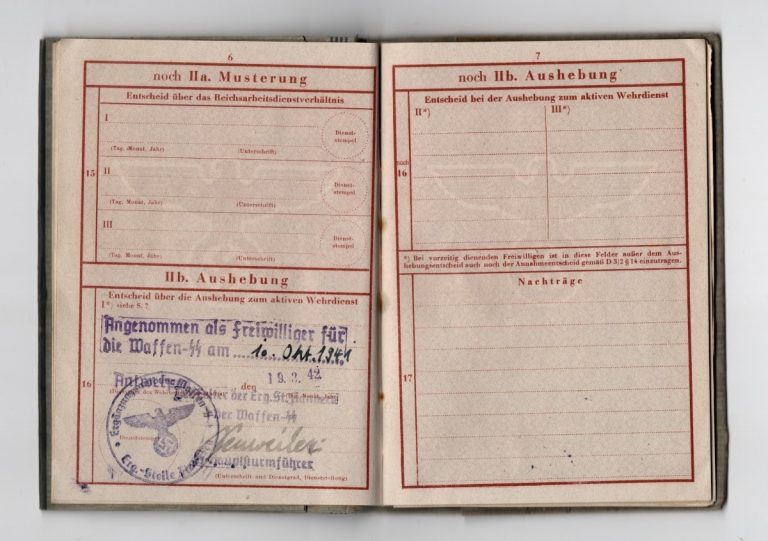 6
noch IIa. Musterung
Entscheid über das Reichsarbeitsdienstverhältnis
15
I
(Tag, Monat, Jahr) (Unterschrift)
Dienst-
stempel
II
(Tag, Monat, Jahr) (Unterschrift)
Dienst-
stempel
III
(Tag, Monat, Jahr) (Unterschrift)
Dienst-
stempel
IIb. Aushebung
Entscheid über die Aushebung zum aktiven Wehrdienst
I*) siehe S. 7
Angenommen als Freiwilliger für
die Waffen-SS am 10. Okt. 1941
16
den 19.3.42
der Erg.
der Waffen-SS
Hauptsturmführer
Erg.-Stelle
(Unterschrift und Dienstgrad, Dienstst-Rang)
7
noch IIb. Aushebung
Entscheid bei der Aushebung zum aktiven Wehrdienst
II*) III*)
noch
16
*) Bei vorzeitig dienenden Freiwilligen ist in diese Felder außer dem Aus-
hebungsentscheid auch noch der Annahmeentscheid gemäß D 3/2 § 14 einzutragen.
Nachträge
17